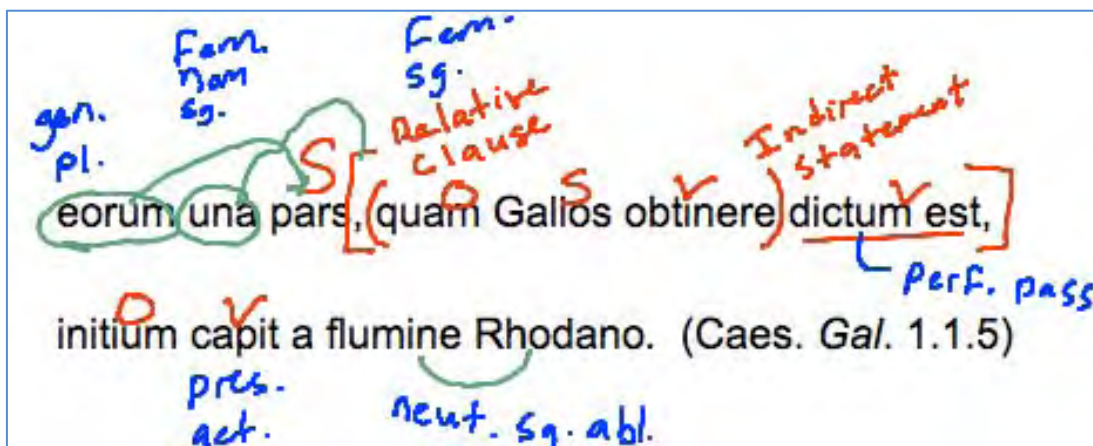 Fem.
nom
sg.
Fem.
sg.
gen.
pl.
Relative
clause
Indirect
statement
S
O S V V
eorum una pars, [(quam Gallos obtinere) dictum est,]
perf. pass
O V
initium capit a flumine Rhodano. (Caes. Gal. 1.1.5)
pres.
act.
neut. sg. abl.